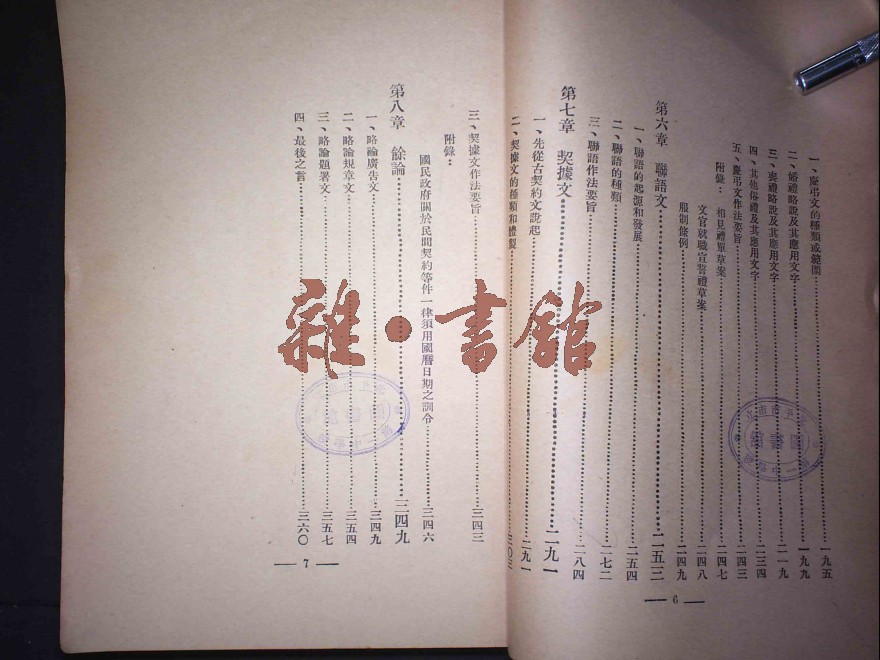 一、慶弔文的種類或範圍……一九五
二、婚禮略說及其應用文字……一九九
三、喪禮略說及其應用文字……二一九
四、其他俗禮及其應用文字……二三四
五、慶弔文作法要旨……二四三
附錄：相見禮單草案……二四七
文官就職宣誓禮草案……二四八
服制條例……二四九
第六章 聯語文……二五三
一、聯語的起源和發展……二五四
二、聯語的種類……二七二
三、聯語作法要旨……二八四
第七章 契據文……二九一
一、先從古契約文說起……二九一
二、契據文的種類和體製……三〇三
— 6 —
三、契據文作法要旨……三四三
附錄：
國民政府關於民間契約等件一律須用國曆日期之訓令……三四六
第八章 餘論……三四九
一、略論廣告文……三四九
二、略論規章文……三五四
三、略論題署文……三五七
四、最後之言……三六〇
— 7 —
雜·書館